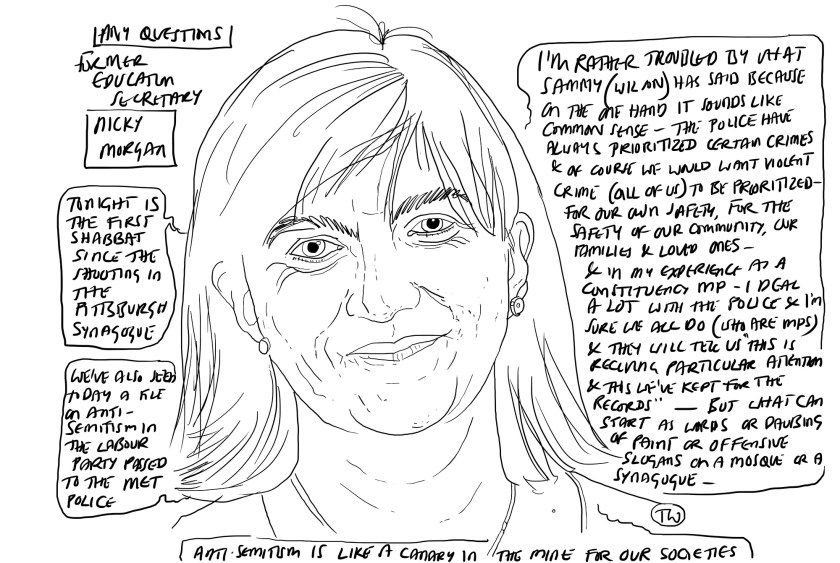 ANY QUESTIONS
FORMER
EDUCATION
SECRETARY
NICKY
MORGAN
TONIGHT IS
THE FIRST
SHABBAT
SINCE THE
SHOOTING IN
THE
PITTSBURGH
SYNAGOGUE
WE'VE ALSO SEEN
TODAY A FILE
ON ANTI-
SEMITISM IN
THE LABOUR
PARTY PASSED
TO THE MET
POLICE
I'M RATHER TROUBLED BY WHAT
SAMMY (WILSON) HAS SAID BECAUSE
ON THE ONE HAND IT SOUNDS LIKE
COMMON SENSE – THE POLICE HAVE
ALWAYS PRIORITIZED CERTAIN CRIMES
& OF COURSE WE WOULD WANT VIOLENT
CRIME (ALL OF US) TO BE PRIORITIZED –
FOR OUR OWN SAFETY, FOR THE
SAFETY OF OUR COMMUNITY, OUR
FAMILIES & LOVED ONES –
& IN MY EXPERIENCE AS A
CONSTITUENCY MP – I DEAL
A LOT WITH THE POLICE & I'M
SURE WE ALL DO (WHO ARE MPS)
& THEY WILL TELL US "THIS IS
RECEIVING PARTICULAR ATTENTION
& THIS WE'VE KEPT FOR THE
RECORDS" – BUT WHAT CAN
START AS WORDS OR DAUBING
OF PAINT OR OFFENSIVE
SLOGANS ON A MOSQUE OR A
SYNAGOGUE –
TW
ANTI-SEMITISM IS LIKE A CANARY IN THE MINE FOR OUR SOCIETIES